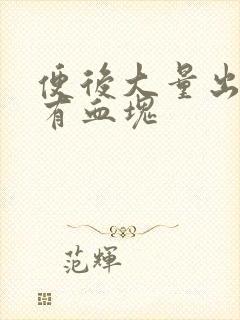 便後大量出
有血塊
范輝